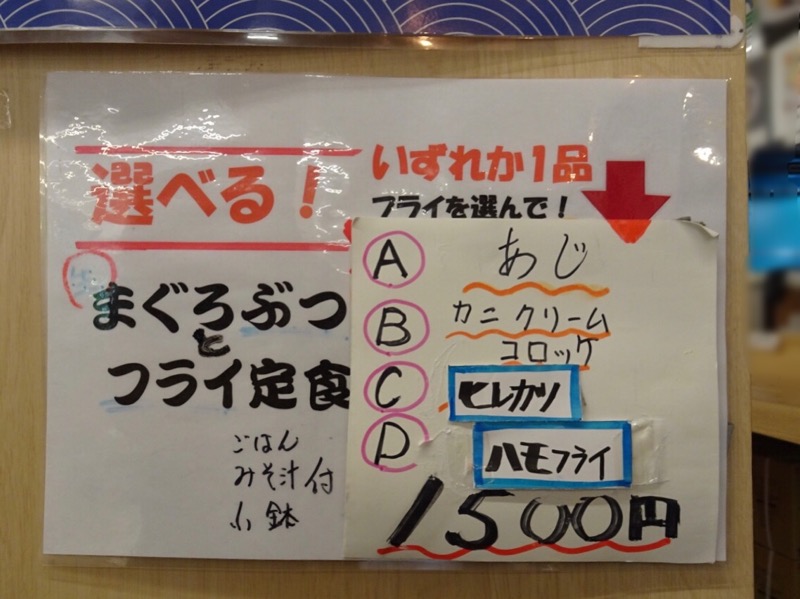 選べる！
いずれか1品
フライを選んで！
まぐろぶつ
と
フライ定食
ごはん
みそ汁付
小鉢
A あじ
B カニクリーム
コロッケ
C ヒレカツ
D ハモフライ
1500円